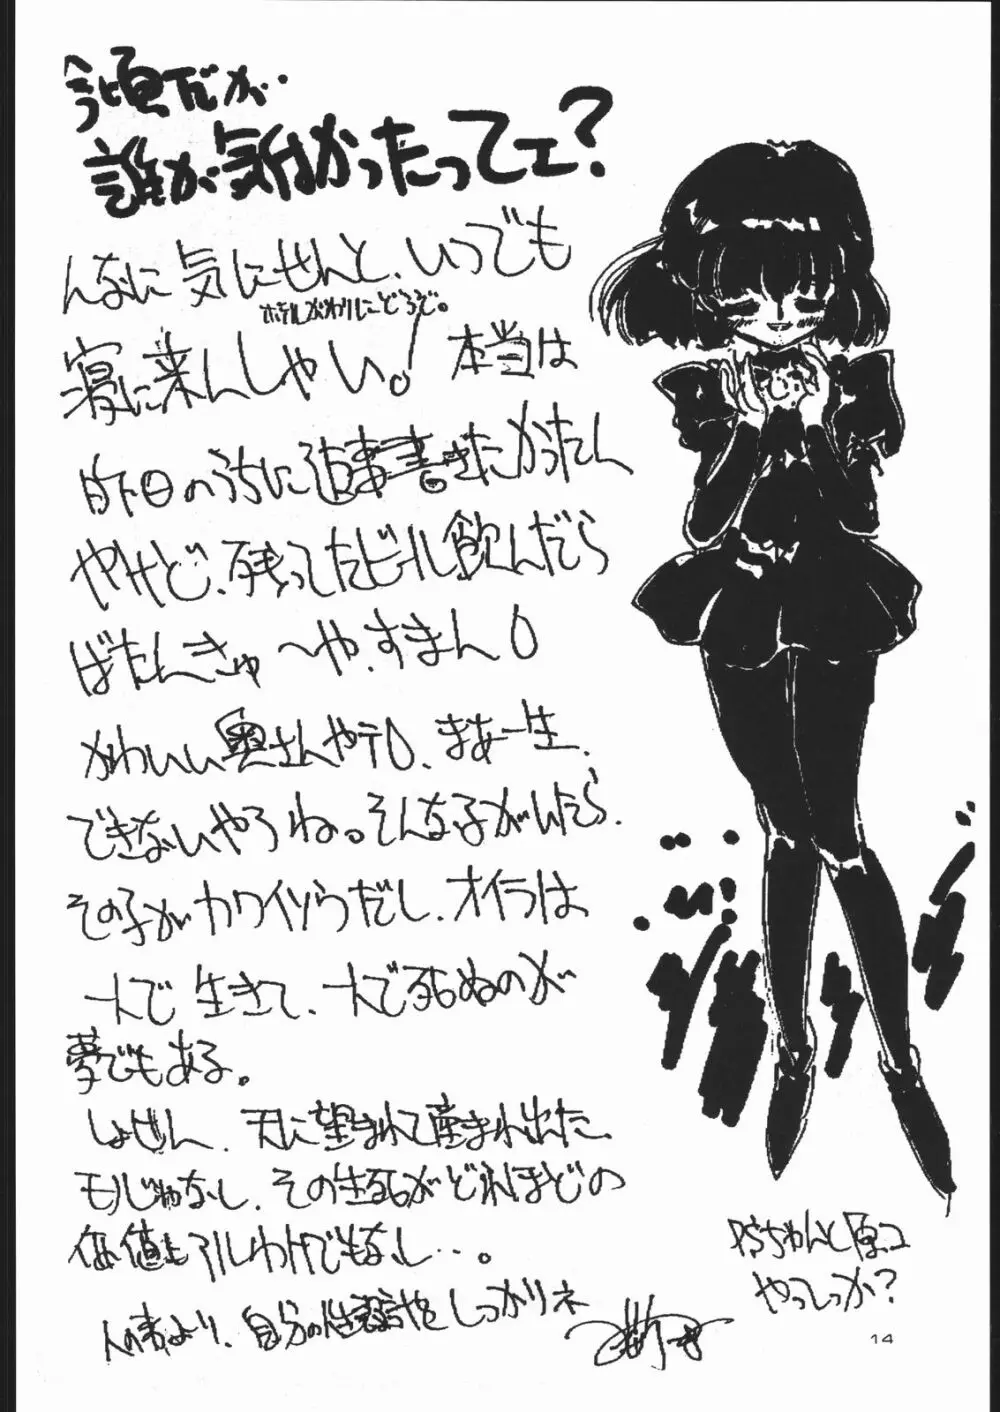 今頃だが‥
誰が気付かったってェ?
んなに気にせんと、いつでも
ホテルがわりにどうぞ。
寝に来んしゃい。! 本当は
昨日のうちに返事書きたかったん
やけど、残ってたビール飲んだら
ばたんきゅ〜や、すまん
かわいい奥さんやテ、まぁ一生、
できないやろね。そんな子がいたら、
その子がカワイソうだし、オイラは
一人で生きて、一人で死ぬのが
夢でもある。
しょせん、天に望まれて産まれ出た
モノじゃなし、その生死がどれほどの
価値もアルわけでもなし…。
人の事より、自分の生設計をしっかりネ
PSちゃんと原コ
やってっか?
14